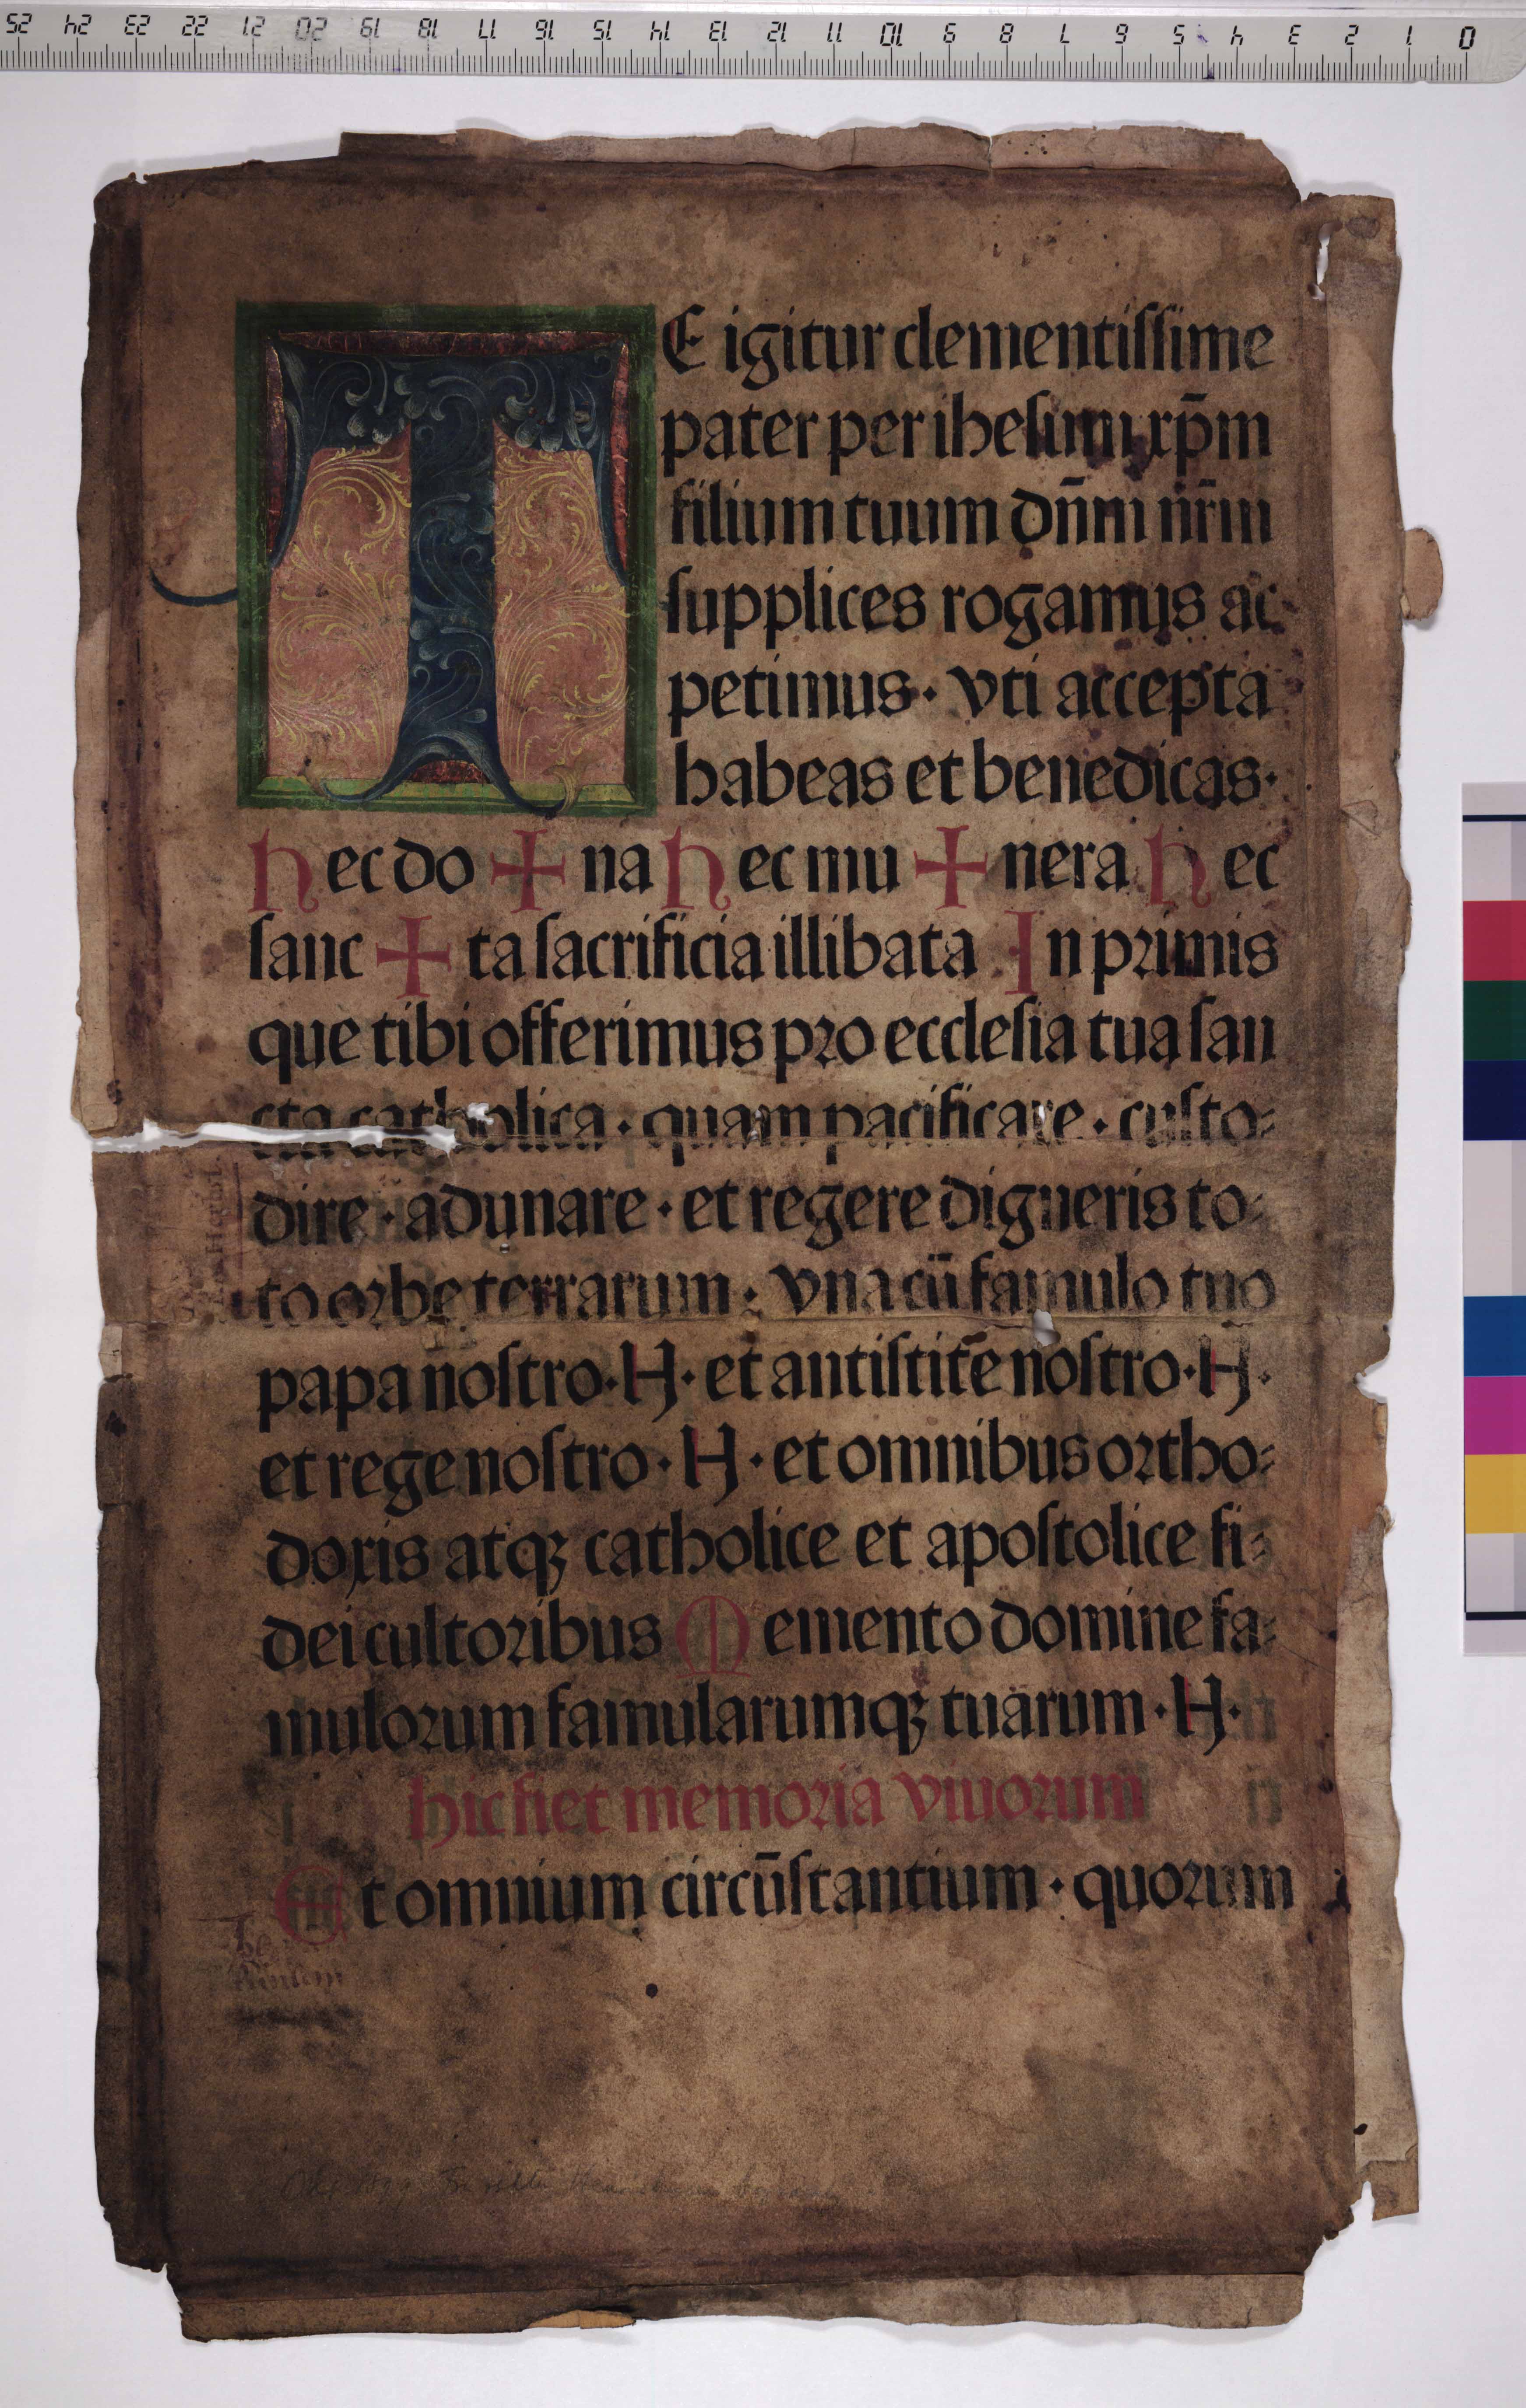 TE igitur clementissime
pater per ihesum xp̄m
filium tuum dn̄m nr̄m
supplices rogamus ac
petimus · vti accepta
habeas et benedicas ·
hec do + na hec mu + nera hec
sanc + ta sacrificia illibata In primis
que tibi offerimus pro ecclesia tua san
cta catholica · quam pacificare · custo=
dire · adunare · et regere digneris to=
to orbe terrarum : vna cū famulo tuo
papa nostro · N · et antistite nostro · N ·
et rege nostro · N · et omnibus ortho=
doxis atqꝫ catholice et apostolice fi=
dei cultoribus Memento domine fa=
mulorum famularumqꝫ tuarum · N ·
hic fiet memoria viuorum
Et omnium circūstantium · quorum
0 1 2 3 4 5 6 7 8 9 10 11 12 13 14 15 16 17 18 19 20 21 22 23 24 25